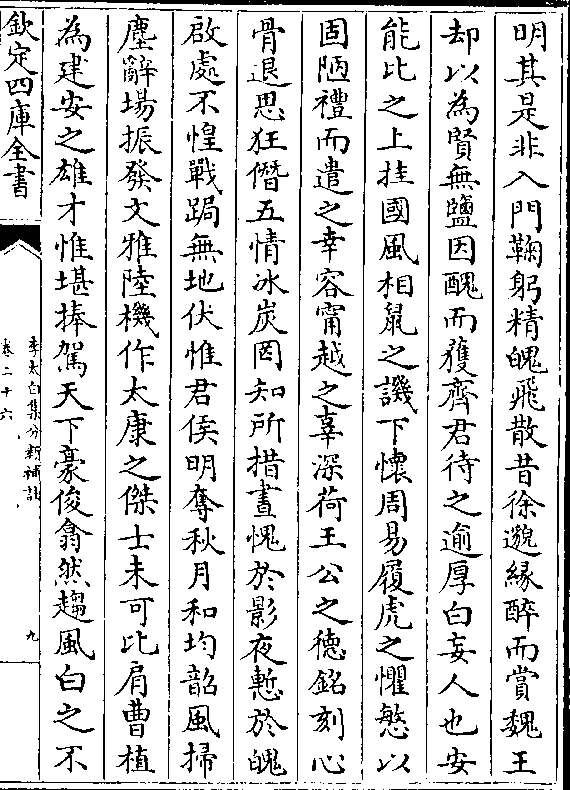 明其是非入門鞠躬精魄飛散昔徐邈緣醉而賞魏王
却以為賢無鹽因醜而獲齊君待之逾厚白妄人也安
能比之上挂國風相鼠之譏下懷周易履虎之懼慜以
固陋禮而遣之幸容甯越之辜深荷王公之德銘刻心
骨退思狂僭五情冰炭罔知所措晝愧於影夜慙於魄
啟處不惶戰跼無地伏惟君侯明奪秋月和均韶風掃
塵辭場振發文雅陸機作太康之傑士未可比肩曹植
為建安之雄才惟堪捧駕天下豪俊翕然趨風白之不
欽定四庫全書
李太白集分類補註
卷二十六
九